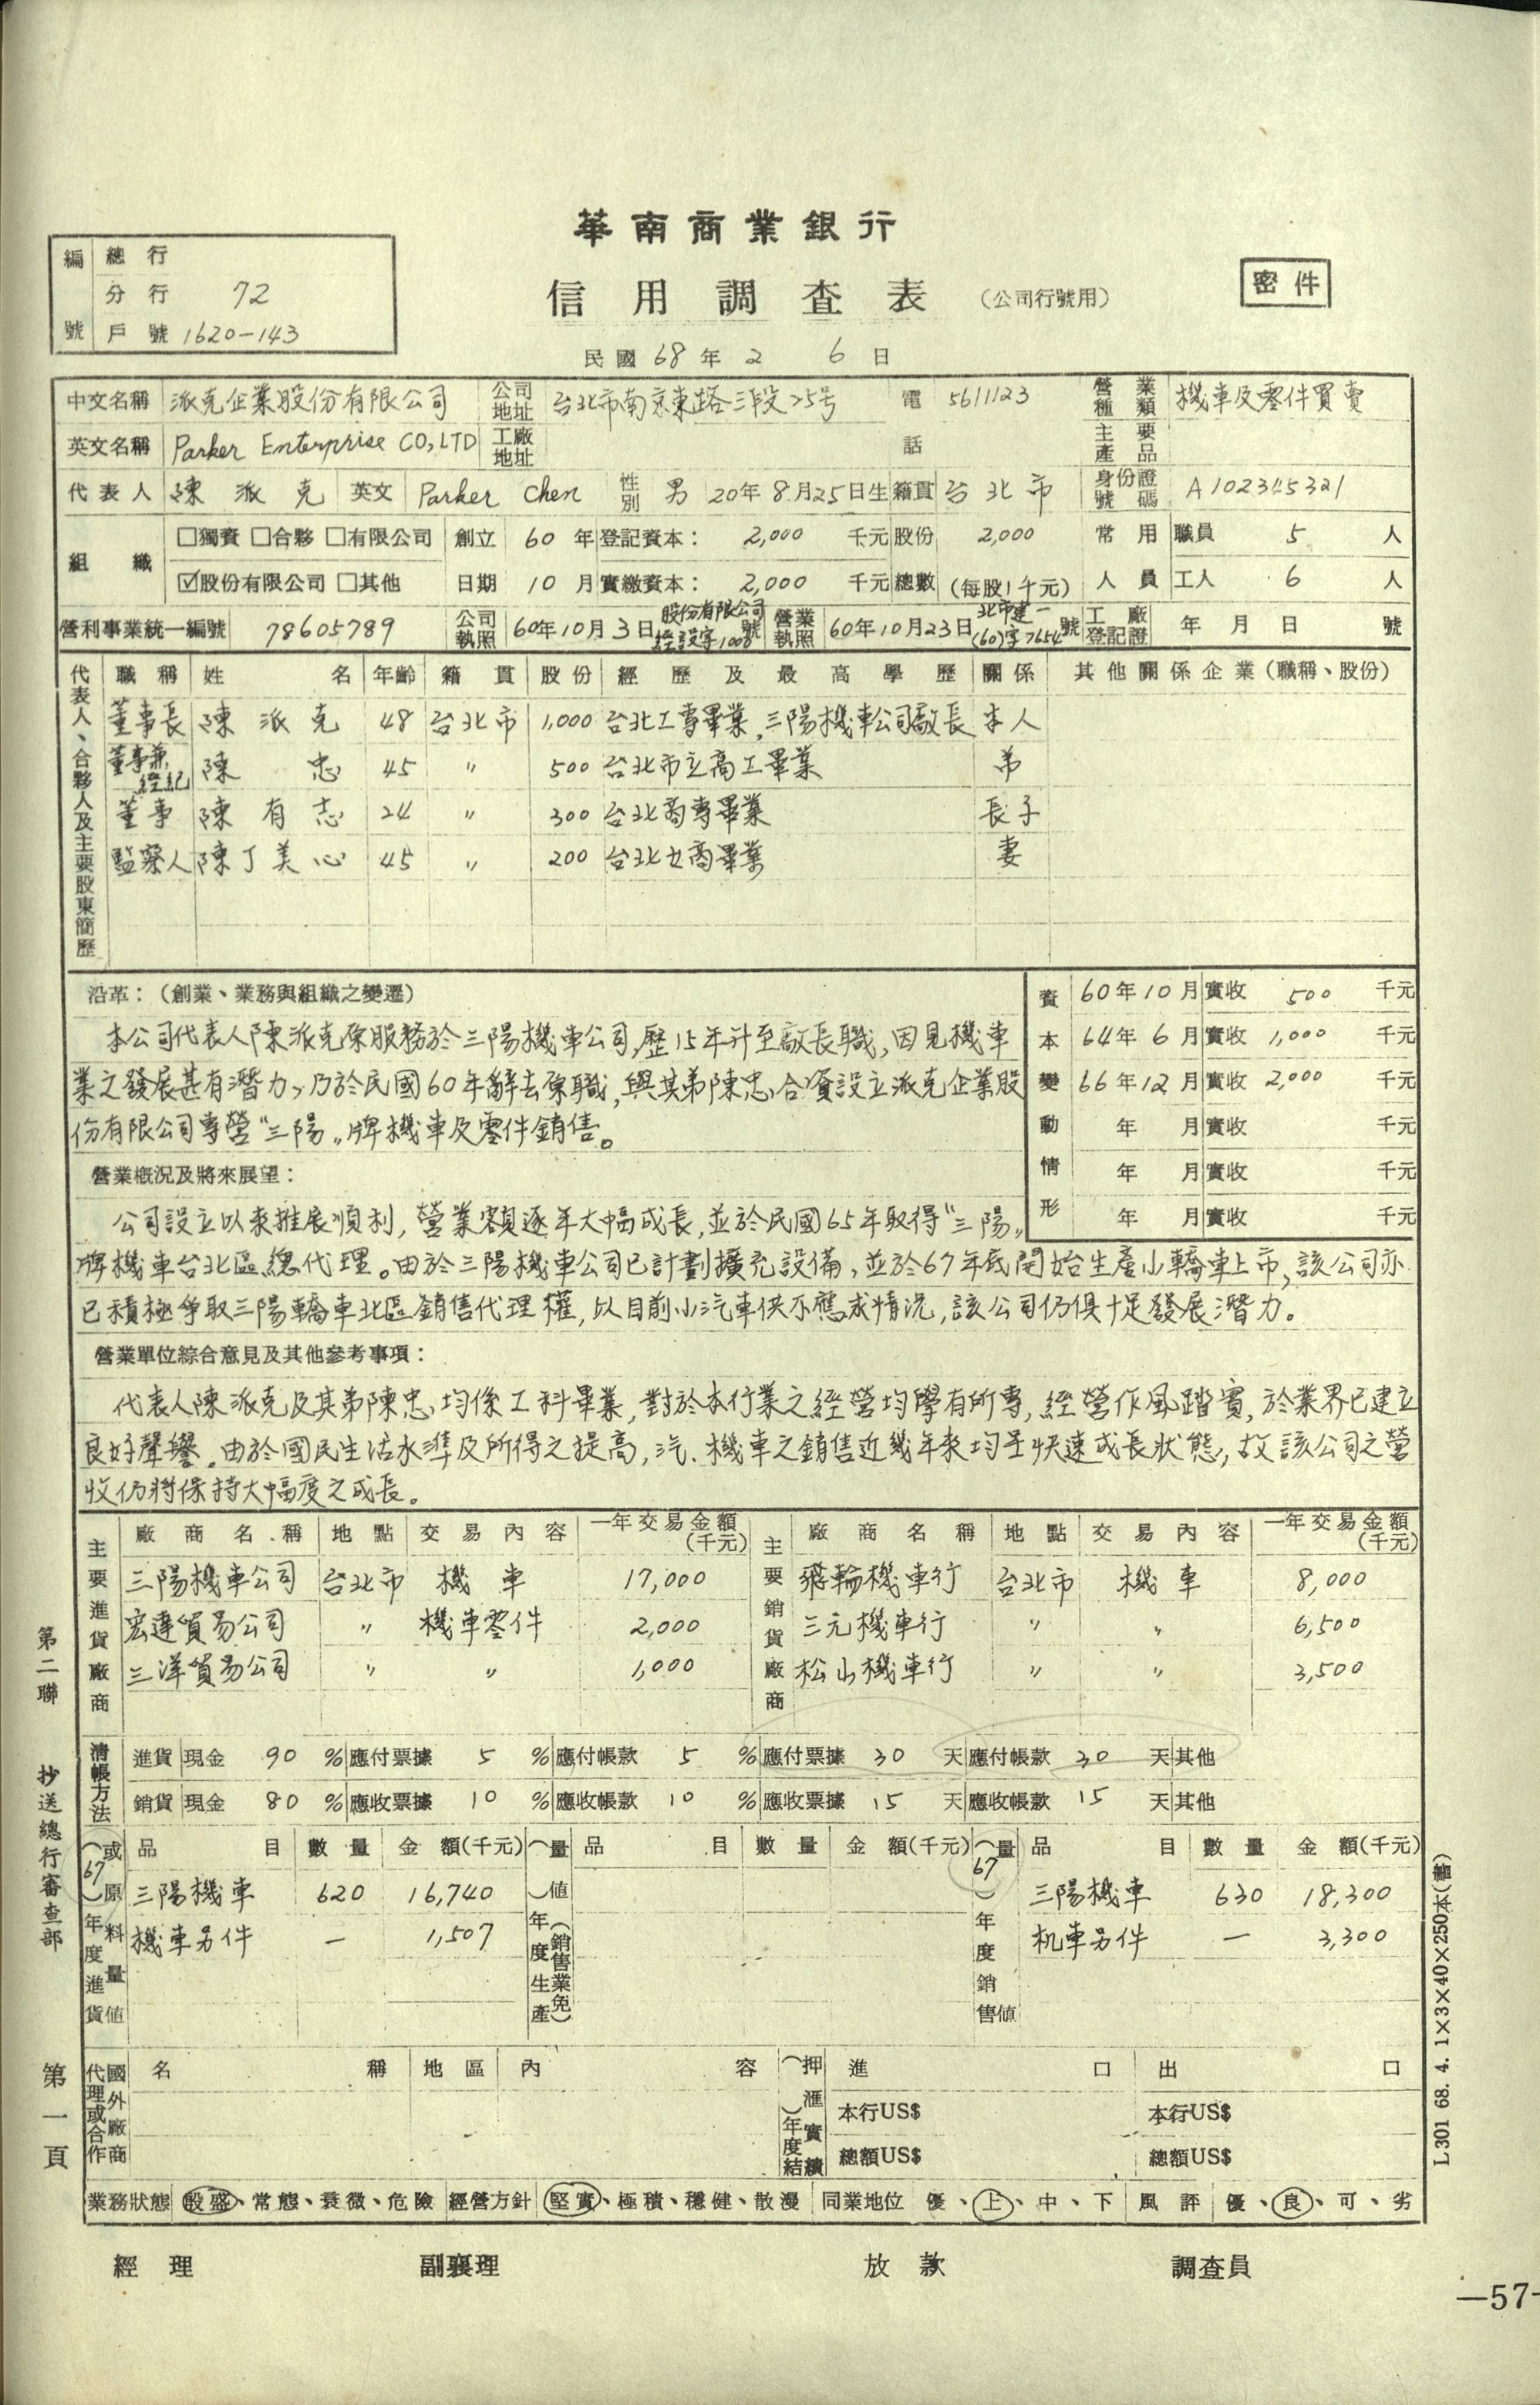 華南商業銀行
信用調查表 （公司行號用）
密件
編號 總行
分行 72
戶號 1620-143
民國 68 年 2 6 日
中文名稱 派克企業股份有限公司 公司地址 台北市南京東路三段25號 電話 5611123 營業種類 機車及零件買賣
英文名稱 Parker Enterprise CO, LTD 工廠地址 主要產品
代表人 陳派克 英文 Parker Chen 性別 男 20年8月25日生 籍貫 台北市 身份證號碼 A102345321
組織 □獨資 □合夥 □有限公司 創立 60 年 登記資本： 2,000 千元 股份 2,000 常用 職員 5 人
☑股份有限公司 □其他 日期 10 月 實繳資本： 2,000 千元 總數 (每股1千元) 人員 工人 6 人
營利事業統一編號 78605789 公司執照 60年10月3日 股份有限公司經設字1008號 營業執照 60年10月23日 北市建一(60)字7654號 工廠登記證 年 月 日 號
代表人、合夥人及主要股東簡歷
職稱 姓名 年齡 籍貫 股份 經歷及最高學歷 關係 其他關係企業（職稱、股份）
董事長 陳派克 48 台北市 1,000 台北工專畢業，三陽機車公司廠長 本人
董事兼經紀 陳忠 45 〃 500 台北市立高工畢業 弟
董事 陳有志 24 〃 300 台北商專畢業 長子
監察人 陳丁美心 45 〃 200 台北女商畢業 妻
沿革：（創業、業務與組織之變遷）
本公司代表人陳派克原服務於三陽機車公司，歷15年升至廠長職，因見機車
業之發展甚有潛力，乃於民國60年辭去原職，與其弟陳忠合資設立派克企業股
份有限公司專營"三陽〃牌機車及零件銷售。
資本變動情形
60年10月 實收 500 千元
64年6月 實收 1,000 千元
66年12月 實收 2,000 千元
年 月 實收 千元
年 月 實收 千元
年 月 實收 千元
營業概況及將來展望：
公司設立以來推展順利，營業額逐年大幅成長，並於民國65年取得"三陽〃
牌機車台北區總代理。由於三陽機車公司已計劃擴充設備，並於67年底開始生產小轎車上市，該公司亦
已積極爭取三陽轎車北區銷售代理權，以目前小汽車供不應求情況，該公司仍俱十足發展潛力。
營業單位綜合意見及其他參考事項：
代表人陳派克及其弟陳忠均係工科畢業，對於本行業之經營均學有所專，經營作風踏實，於業界已建立
良好聲譽。由於國民生活水準及所得之提高，汽、機車之銷售近幾年來均呈快速成長狀態，故該公司之營
收仍將保持大幅度之成長。
主要進貨廠商 廠商名稱 地點 交易內容 一年交易金額(千元) 主要銷貨廠商 廠商名稱 地點 交易內容 一年交易金額(千元)
三陽機車公司 台北市 機車 17,000 飛輪機車行 台北市 機車 8,000
宏達貿易公司 〃 機車零件 2,000 三元機車行 〃 〃 6,500
三洋貿易公司 〃 〃 1,000 松山機車行 〃 〃 3,500
清帳方法
進貨 現金 90 % 應付票據 5 % 應付帳款 5 % 應付票據 30 天 應付帳款 30 天 其他
銷貨 現金 80 % 應收票據 10 % 應收帳款 10 % 應收票據 15 天 應收帳款 15 天 其他
（67）年度進貨或原料量值 品目 數量 金額(千元) （ ）年度生產量值（銷售業免） 品目 數量 金額(千元) （67）年度銷售量值 品目 數量 金額(千元)
三陽機車 620 16,740 三陽機車 630 18,300
機車另件 — 1,507 机車另件 — 3,300
代理或合作國外廠商 名稱 地區 內容 （ ）年度結押匯實績 進口 出口
本行US$ 本行US$
總額US$ 總額US$
業務狀態 殷盛、常態、衰微、危險 經營方針 堅實、極積、穩健、散漫 同業地位 優、上、中、下 風評 優、良、可、劣
經理 副襄理 放款 調查員
第二聯 抄送總行審查部 第一頁
L301 68. 4. 1×3×40×250本(舊)
—57-